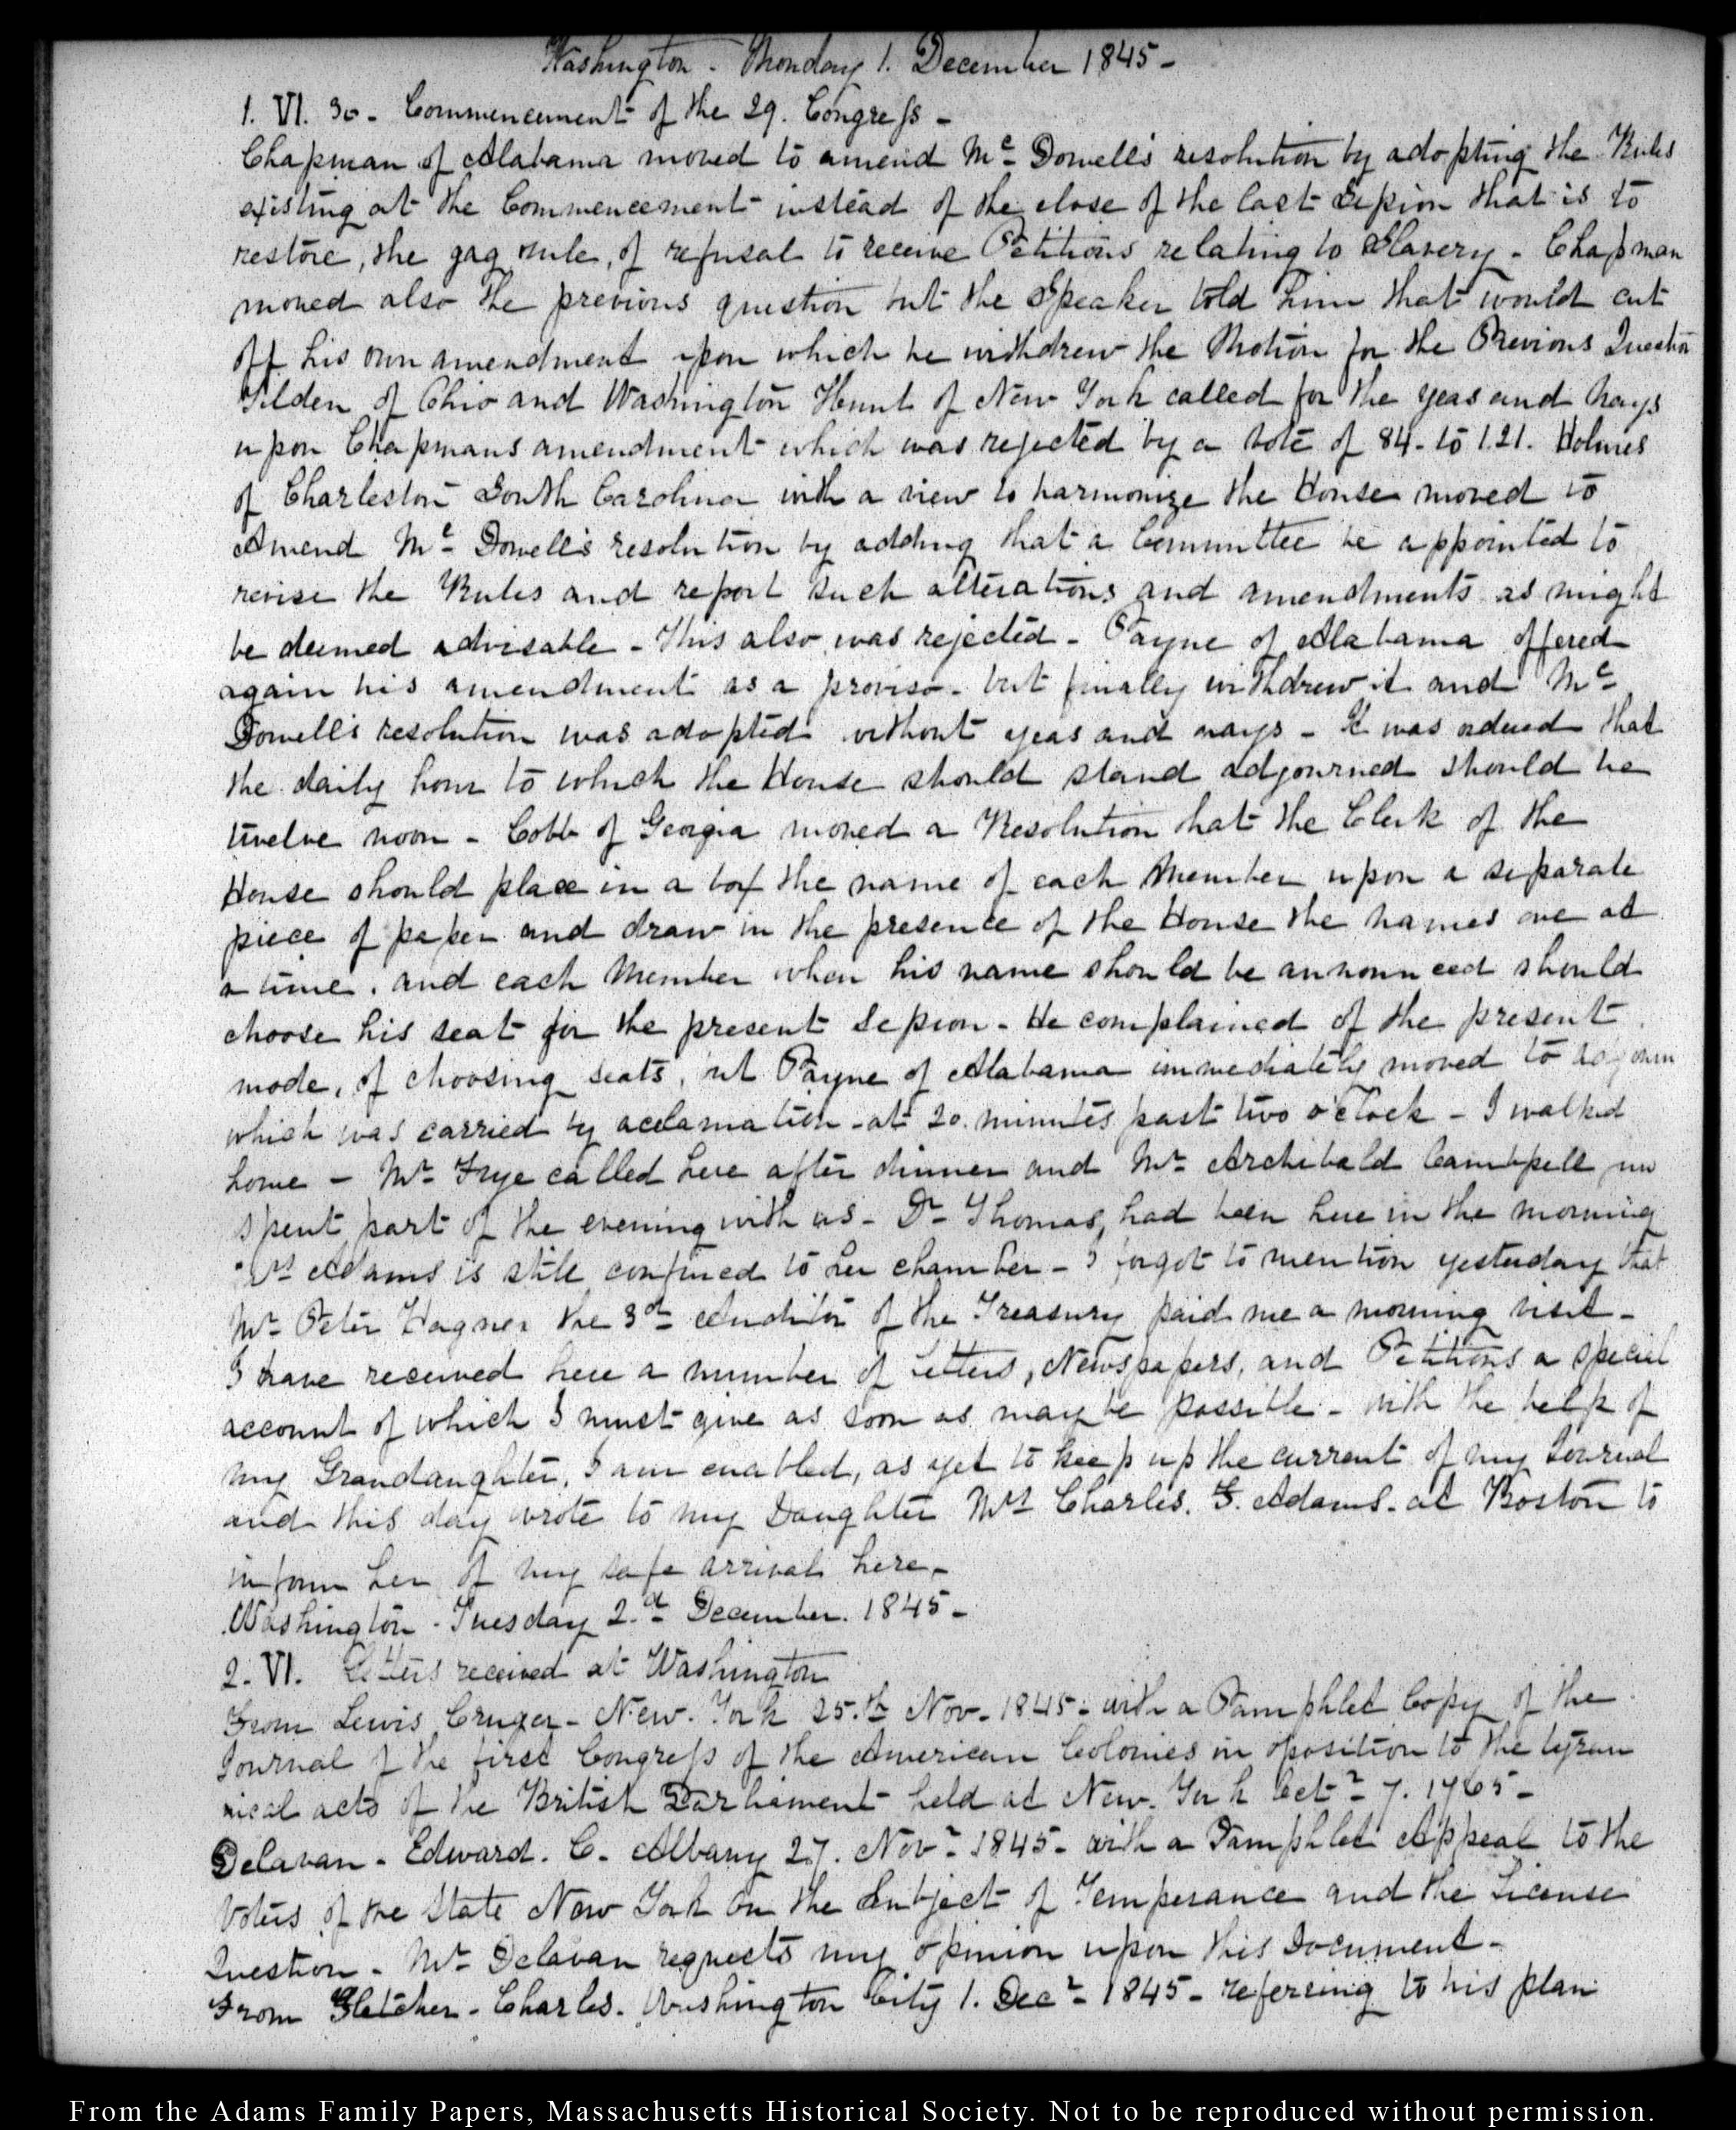 Washington - Monday 1. December 1845 -
1. VI. 30 - Commencement of the 29. Congress -
Chapman of Alabama moved to amend Mc Dowell's resolution by adopting the Rules
existing at the Commencement instead of the close of the last Session that is to
restore, the gag rule, of refusal to receive Petitions relating to Slavery - Chapman
moved also the previous question but the Speaker told him that would cut
off his own amendment upon which he withdrew the Motion for the Previous Question
Tilden of Ohio and Washington Hunt of New York called for the yeas and nays
upon Chapmans amendment which was rejected by a vote of 84 - to 121. Holmes
of Charleston South Carolina with a view to harmonize the House moved to
Amend Mc Dowell's resolution by adding that a Committee be appointed to
revise the Rules and report such alterations and amendments as might
be deemed advisable - This also was rejected - Payne of Alabama offered
again his amendment as a proviso - but finally withdrew it and Mc
Dowell's resolution was adopted without yeas and nays - It was ordered that
the daily hour to which the House should stand adjourned should be
twelve noon - Cobb of Georgia moved a Resolution that the Clerk of the
House should place in a box the name of each Member upon a separate
piece of paper and draw in the presence of the House the names one at
a time, and each Member when his name should be announced should
choose his seat for the present Session - He complained of the present
mode, of choosing seats, but Payne of Alabama immediately moved to adjourn
which was carried by acclamation - at 20 minutes past two o'clock - I walked
home - Mr Frye called here after dinner and Mr Archibald Cambpell
spent part of the evening with us - Dr Thomas, had been here in the morning
Mrs Adams is still confined to her chamber - I forgot to mention yesterday that
Mr Peter Hagner the 3d Auditor of the Treasury paid me a morning visit -
I have received here a number of Letters, Newspapers, and Petitions a special
account of which I must give as soon as may be possible - with the help of
my Grandaughter, I am enabled, as yet to keep up the current of my Journal
and this day wrote to my Daughter Mrs Charles. F. Adams - at Boston to
inform her of my safe arrival here -
Washington - Tuesday 2.d December. 1845 -
2. VI. Letters received at Washington
From Lewis Cruger - New. York 25.th Nov - 1845 - with a Pamphlet Copy of the
Journal of the first Congress of the American Colonies in oposition to the tyran
nical acts of the British Parliament held at New. York Octr 7. 1765 -
Delavan - Edward. C. Albany 27. Novr 1845 - with a Pamphlet Appeal to the
Voters of the State New York on the Subject of Temperance and the License
Question - Mr Delavan requests my opinion upon this Document -
From Fletcher - Charles. Washington City 1. Decr 1845 - referring to his plan
From the Adams Family Papers, Massachusetts Historical Society. Not to be reproduced without permission.